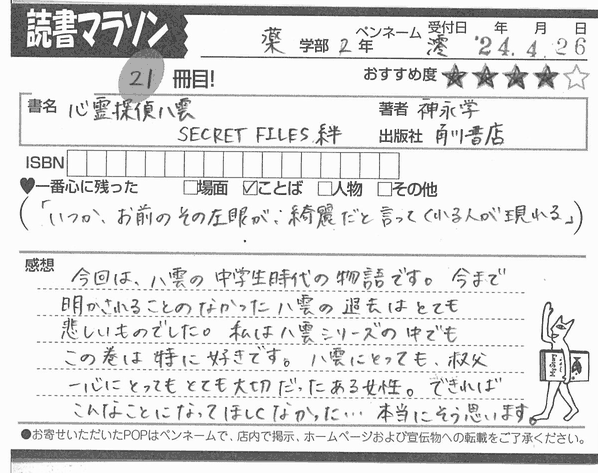 読書マラソン
薬 学部 2 年 ペンネーム 澪 受付日 '24. 年 4. 月 26 日
21 冊目! おすすめ度 ★★★★☆
書名 心霊探偵八雲 著者 神永学
SECRET FILES 絆 出版社 角川書店
ISBN
♥一番心に残った □場面 ☑ことば □人物 □その他
(「いつか、お前のその左眼が、綺麗だと言ってくれる人が現れる」)
感想
今回は、八雲の中学生時代の物語です。今まで
明かされることのなかった八雲の過去はとても
悲しいものでした。私は八雲シリーズの中でも
この巻は特に好きです。八雲にとっても、叔父
一心にとってもとても大切だったある女性。できれば
こんなことになってほしくなかった… 本当にそう思います。
●お寄せいただいたPOPはペンネームで、店内で掲示、ホームページおよび宣伝物への転載をご了承ください。